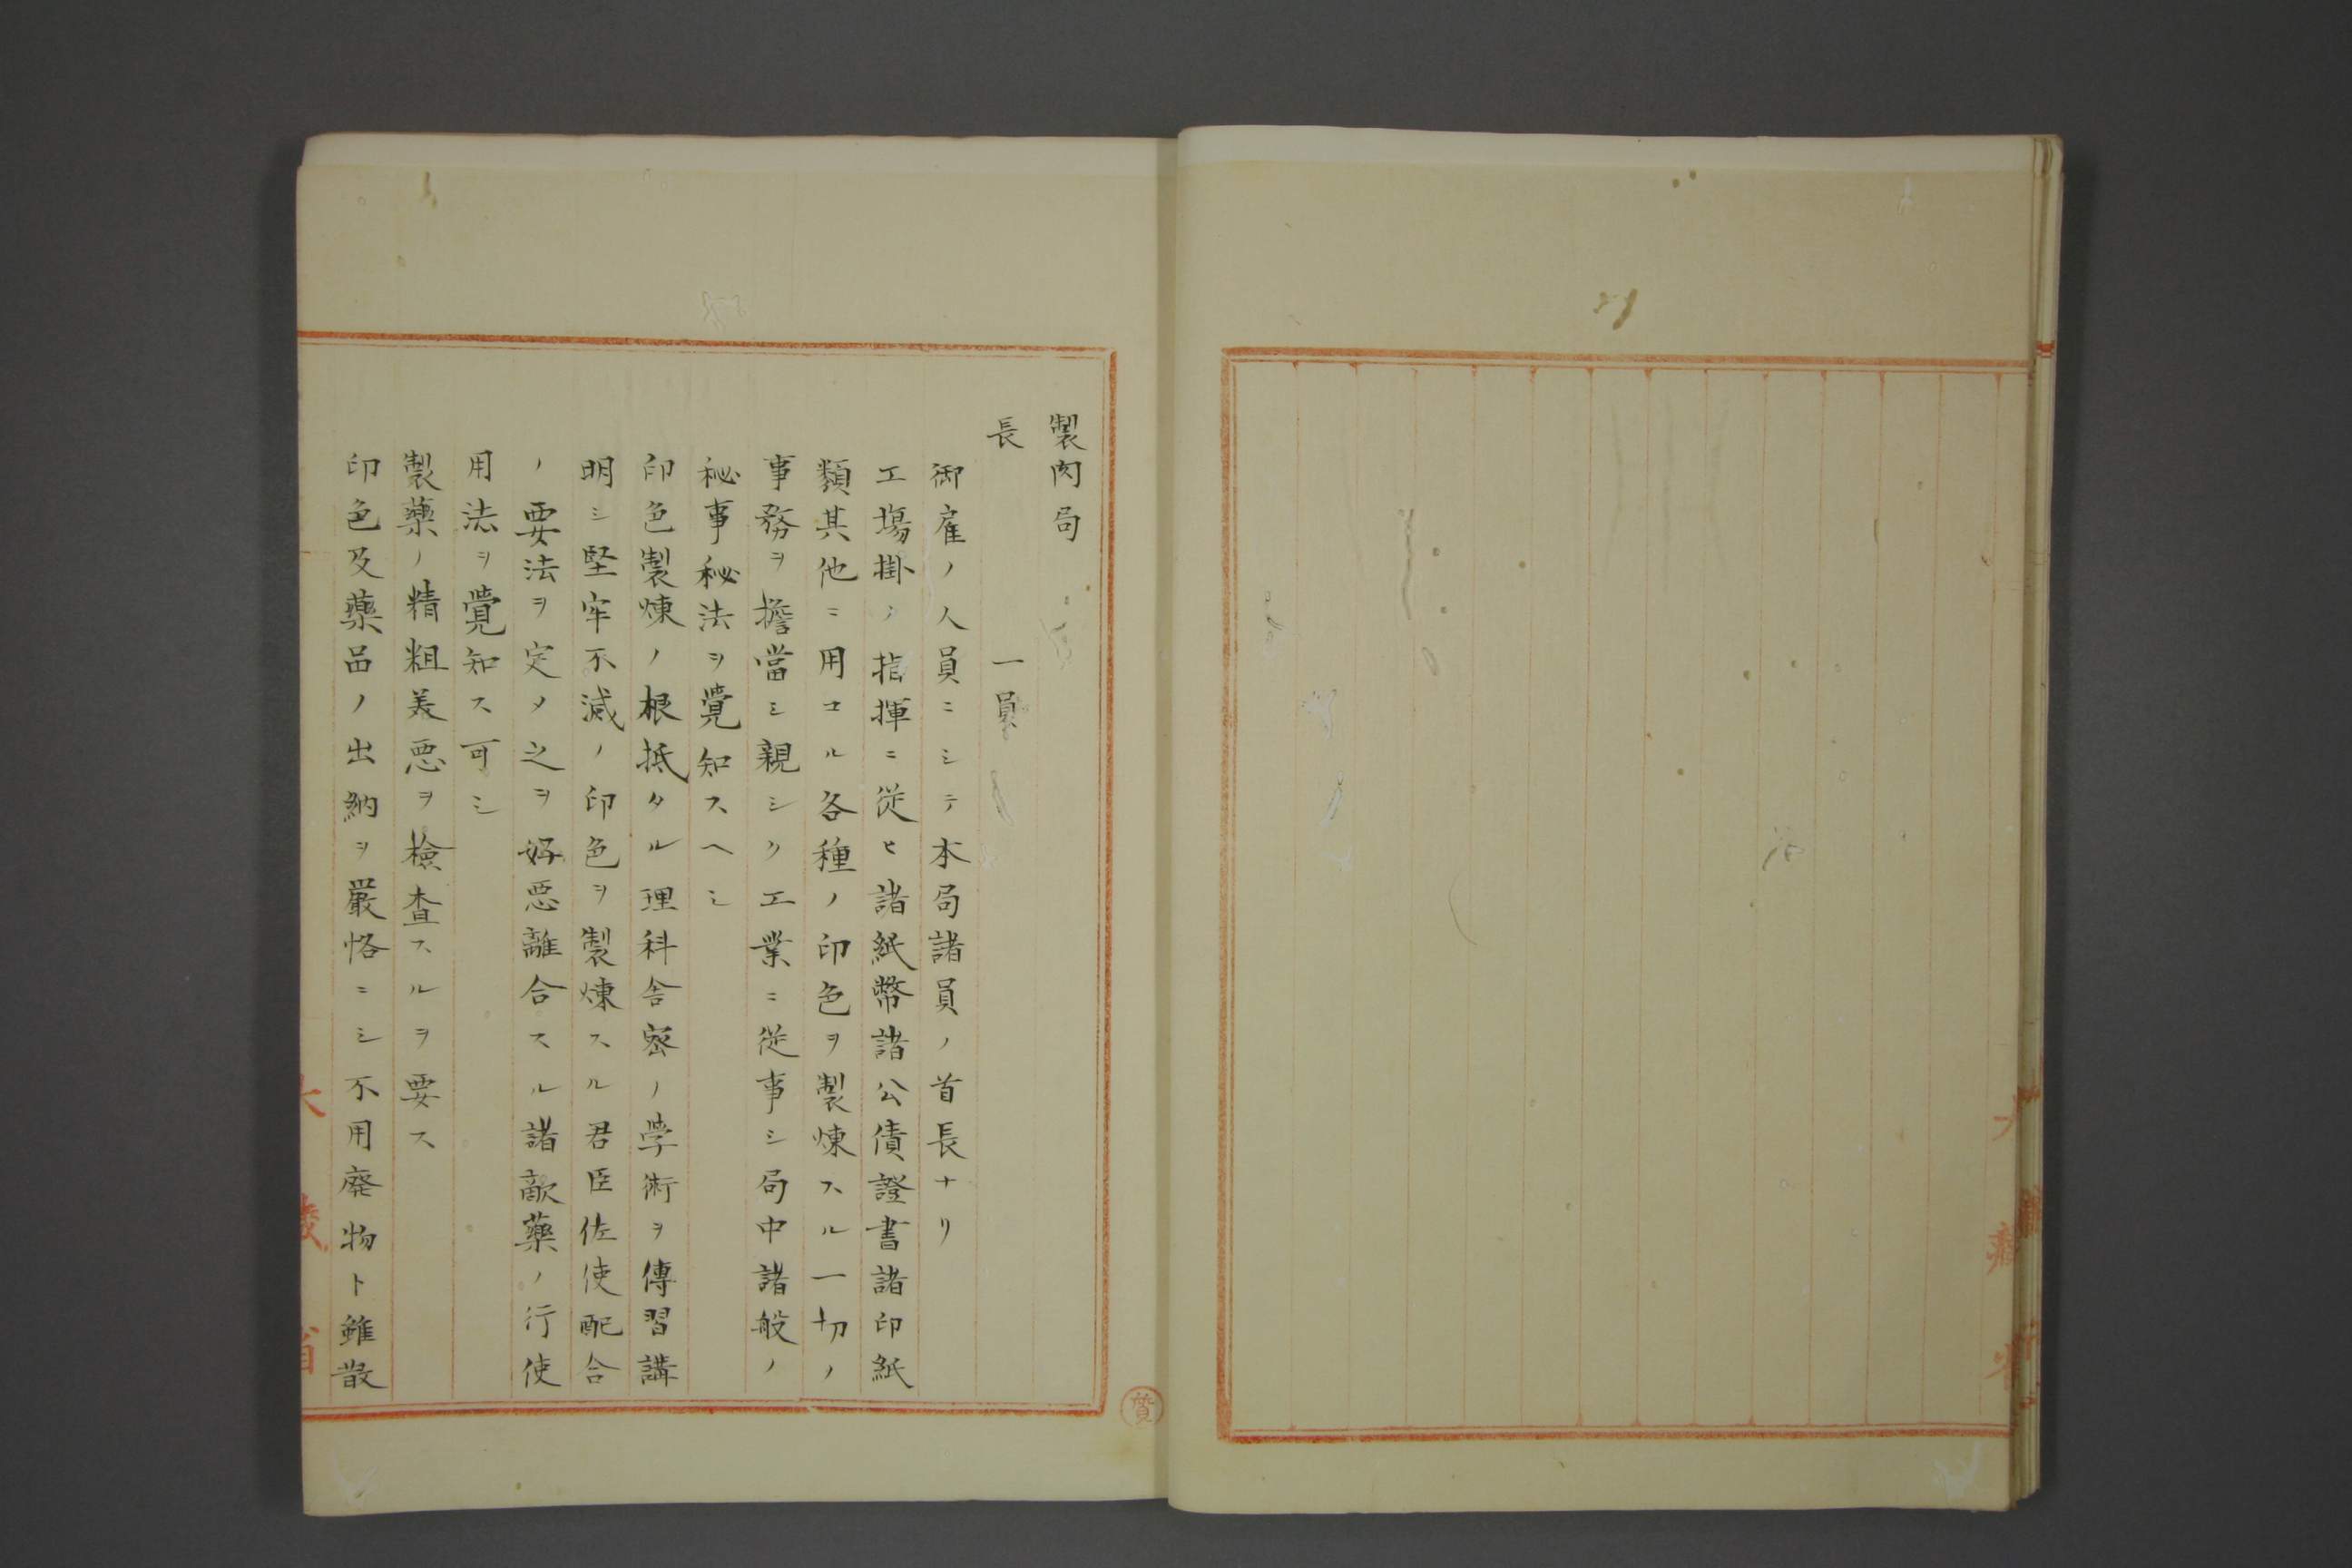 製肉局
長　一員
御雇ノ人員ニシテ本局諸員ノ首長ナリ
工塲掛ノ指揮ニ從ヒ諸紙幣諸公債證書諸印紙
類其他ニ用ユル各種ノ印色ヲ製煉スル一切ノ
事務ヲ擔當シ親シク工業ニ從事シ局中諸般ノ
秘事秘法ヲ覺知スヘシ
印色製煉ノ根抵タル理科舎密ノ學術ヲ傳習講
明シ堅牢不滅ノ印色ヲ製煉スル君臣佐使配合
ノ要法ヲ定メ之ヲ好惡離合スル諸敵藥ノ行使
用法ヲ覺知ス可シ
製藥ノ精粗美惡ヲ檢査スルヲ要ス
印色及藥品ノ出納ヲ嚴恪ニシ不用廢物ト雖散
大藏省